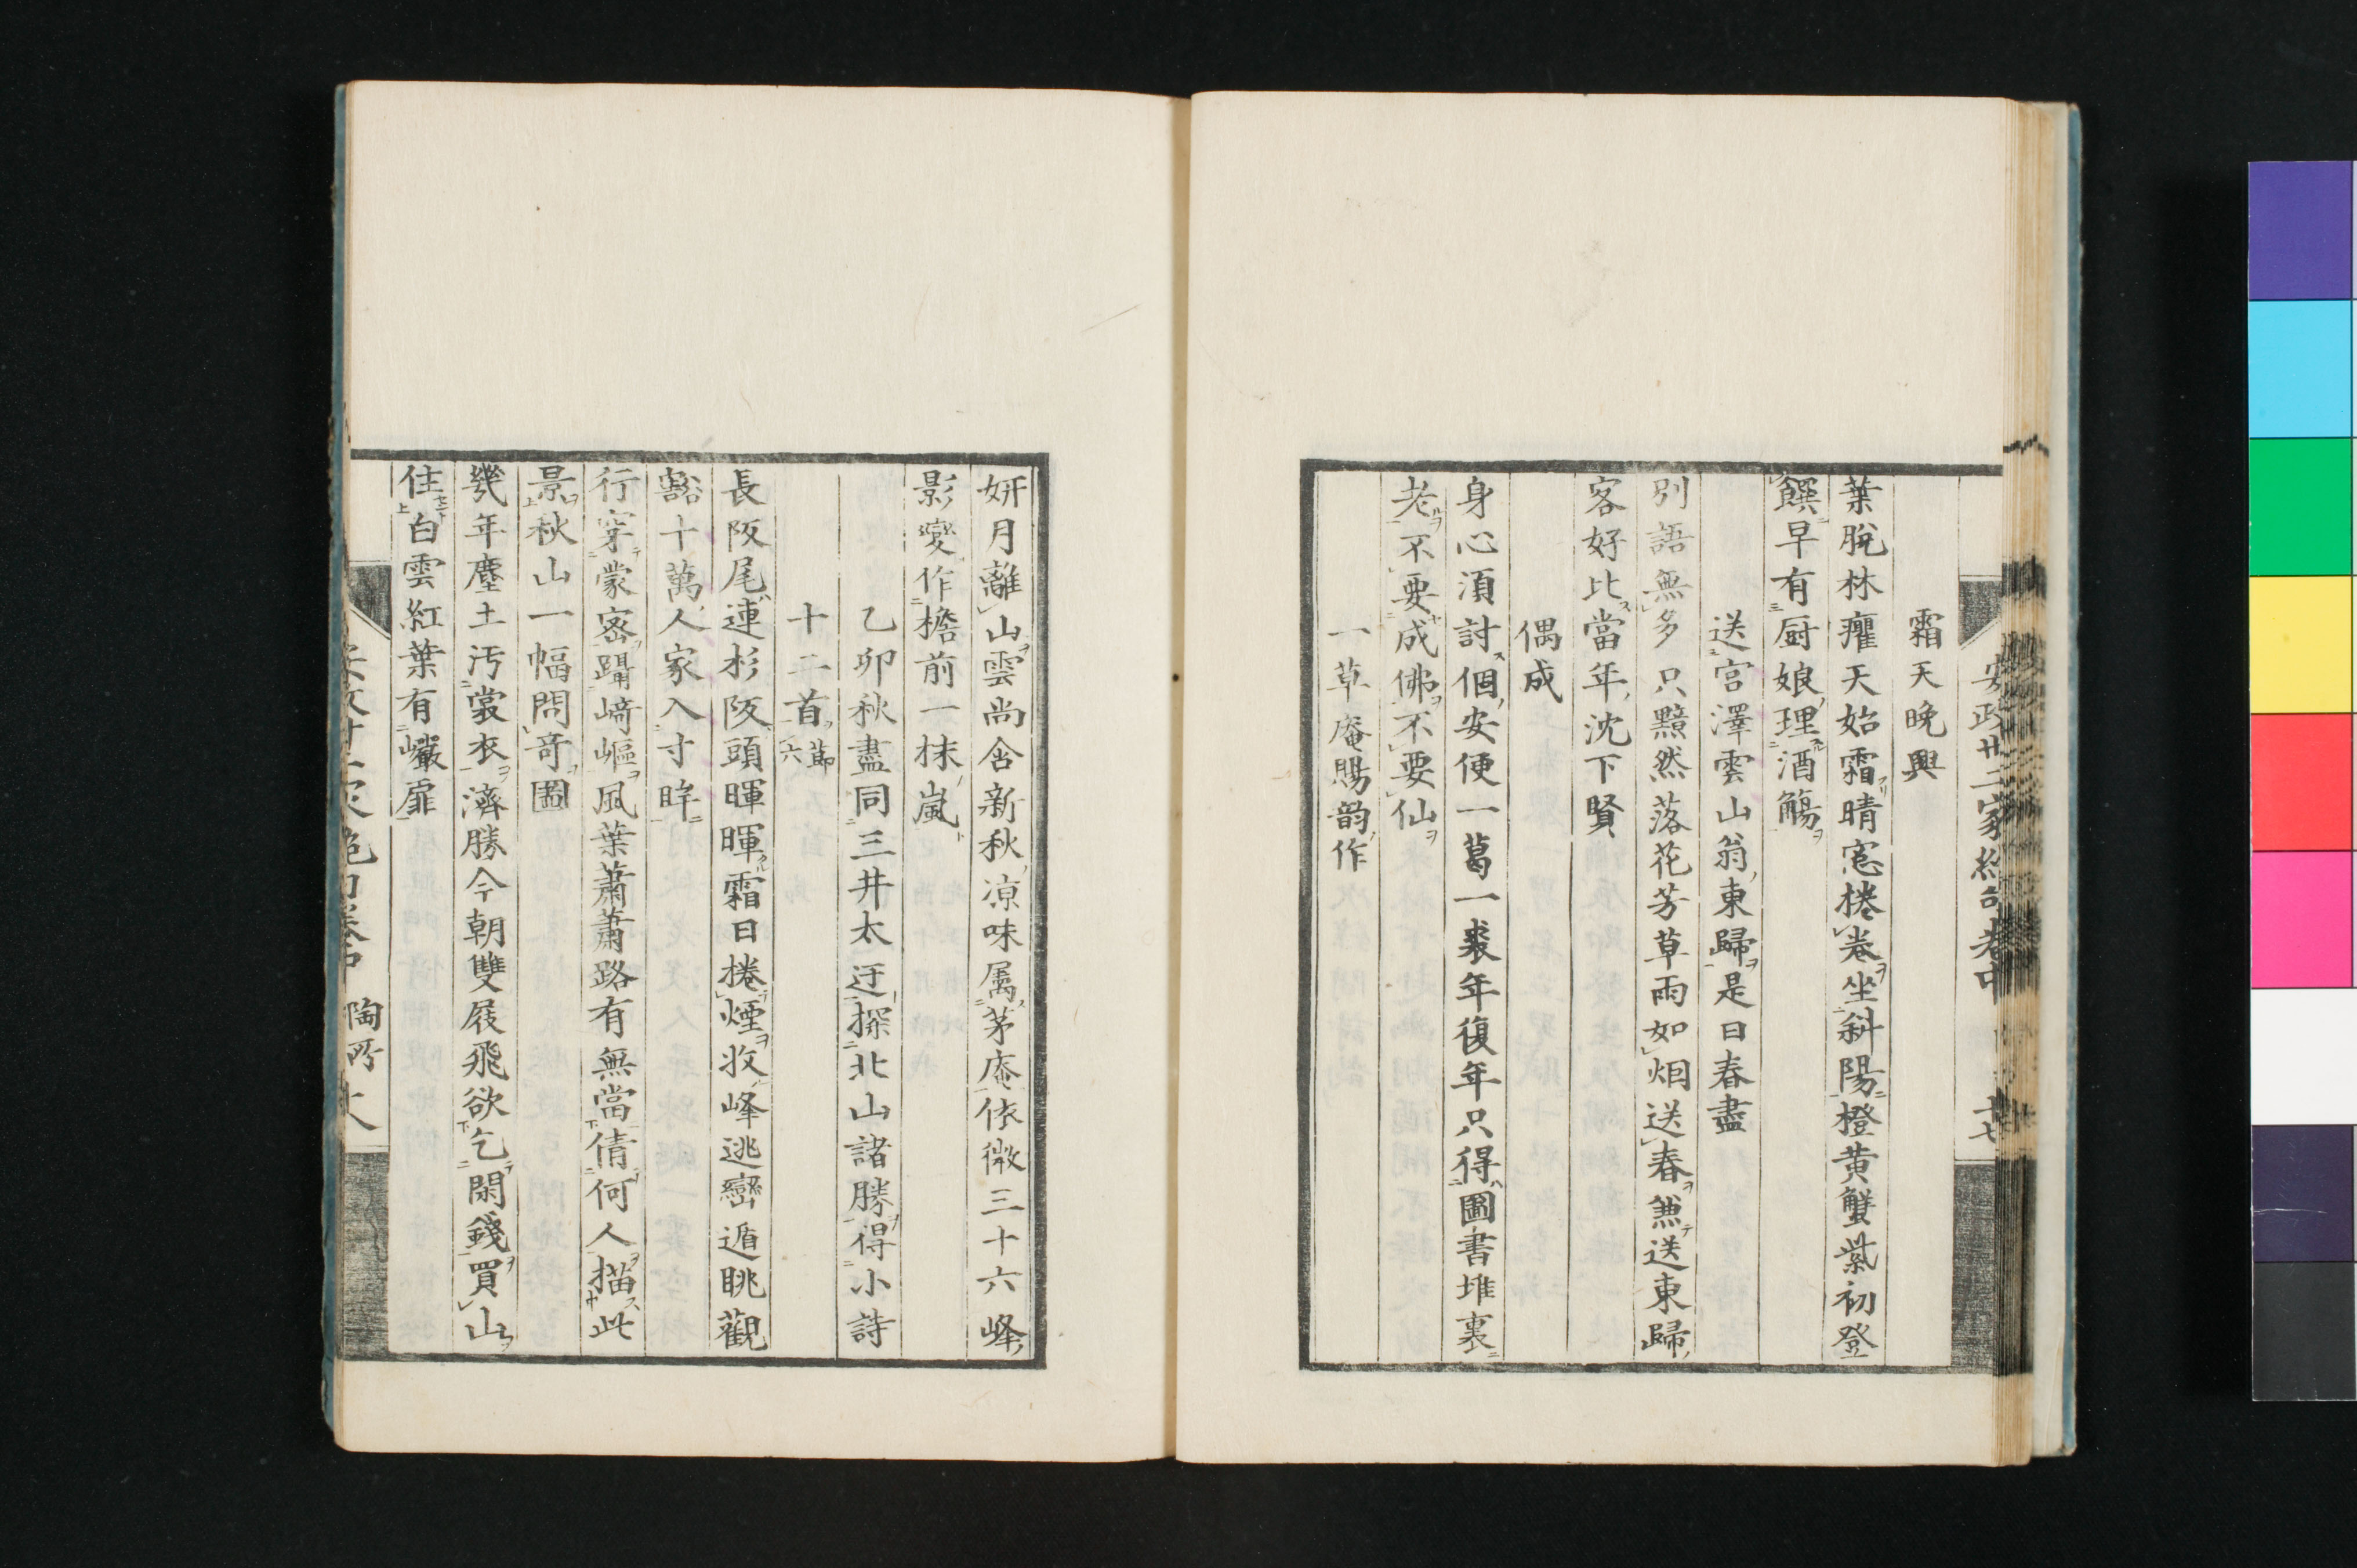 霜天晚興
葉脫林癯天始霜晴窓捲卷坐斜陽橙黄蟹紫初登
饌早有厨娘理酒觴
送宮澤雲山翁東歸是日春盡
別語無多只黯然落花芳草雨如烟送春兼送東歸
客好比當年沈下賢
偶成
身心須討個安便一葛一裘年復年只得圖書堆裏
老不要成佛不要仙
一草庵賜韵作
妍月離山雲尚含新秋凉味属茅庵依微三十六峰
影變作檐前一抹嵐
乙卯秋盡同三井太迂探北山諸勝得小詩
十二首節六
長阪尾連杉阪頭暉暉霜日捲煙收峰逃巒遁眺觀
豁十萬人家入寸眸
行穿蒙密躡﨑嶇風葉蕭蕭路有無當倩何人描此
景秋山一幅閟奇圖
幾年塵土汚裳衣濟勝今朝雙屐飛欲乞閑錢買山
住白雲紅葉有巖扉